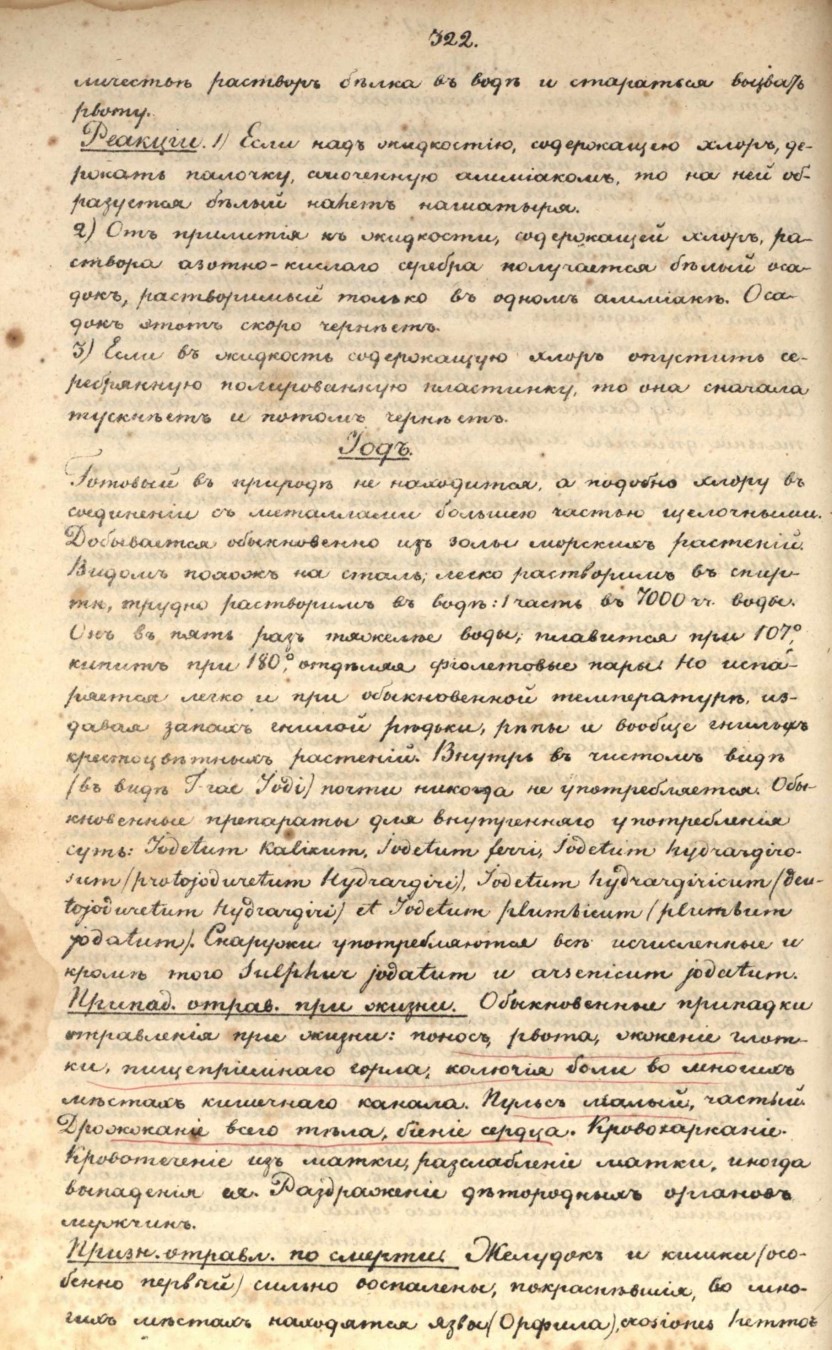 322.
личествѣ растворъ бѣлка въ водѣ и стараться вызвать
рвоту.
Реакціи. 1) Если надъ жидкостію, содержащею хлоръ, де-
ржать палочку, смоченную амміакомъ, то на ней об-
разуется бѣлый налетъ нашатыря.
2) Отъ прилитія къ жидкости, содержащей хлоръ, ра-
створа азотно-кислаго серебра получается бѣлый оса-
докъ, растворимый только въ одномъ амміакѣ. Оса-
докъ этотъ скоро чернѣетъ.
3) Если въ жидкость содержащую хлоръ опустить се-
ребрянную полированную пластинку, то она сначала
тускнѣетъ и потомъ чернѣетъ.
Іодъ.
Готовый въ природѣ не находится, а подобно хлору въ
соединеніи съ металлами большею частью щелочными.
Добывается обыкновенно изъ золы морскихъ растеній.
Видомъ похожъ на сталь; легко растворимъ въ спир-
тѣ, трудно растворимъ въ водѣ: 1 часть въ 7000 чч. воды.
Онъ въ пять разъ тяжелѣе воды; плавится при 107°,
кипитъ при 180°, отдѣляя фіолетовые пары. Но испа-
ряется легко и при обыкновенной температурѣ, из-
давая запахъ гнилой рѣдьки, рѣпы и вообще гнилыхъ
крестоцвѣтныхъ растеній. Внутрь въ чистомъ видѣ
(въ видѣ T-rae Jodi) почти никогда не употребляется. Обы-
кновенные препараты для внутренняго употребленія
суть: Jodetum Kalicum, Jodetum ferri, Jodetum hydrargiro-
sum (protojoduretum Hydrargiri), Jodetum hydrargiricum (deu-
tojoduretum Hydrargiri) et Jodetum plumbicum (plumbum
jodatum). Снаружи употребляются всѣ исчисленные и
кромѣ того Sulphur jodatum и arsenicum jodatum.
Припад. отрав. при жизни. Обыкновенные припадки
отравленія при жизни: поносъ, рвота, жженіе глот-
ки, пищепріемнаго горла, колючія боли во многихъ
мѣстахъ кишечнаго канала. Пульсъ малый, частый.
Дрожжаніе всего тѣла, біеніе сердца. Кровохарканіе.
Кровотеченіе изъ матки, разслабленіе матки, иногда
выпаденія ея. Раздраженіе дѣтородныхъ органовъ
мужчинъ.
Призн. отравл. по смерти. Желудокъ и кишки (осо-
бенно первый) сильно воспалены, покраснѣвшія, во мно-
гихъ мѣстахъ находятся язвы (Орфила), erosiones